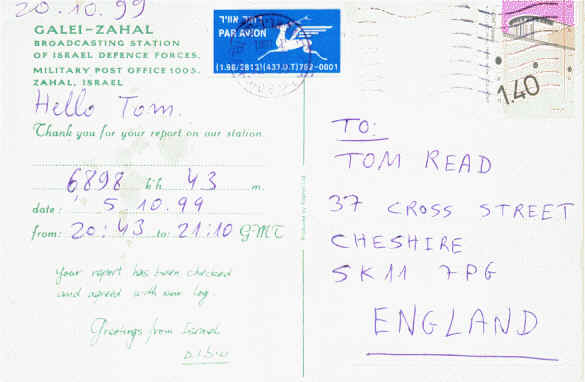 20.10.99
GALEI-ZAHAL
BROADCASTING STATION
OF ISRAEL DEFENCE FORCES,
MILITARY POST OFFICE 1005,
ZAHAL, ISRAEL
Hello Tom.
Thank you for your report on our station.
6898 kh 43 m.
date: 5.10.99
from: 20:43 to: 21:10 GMT
Your report has been checked
and agreed with our log.
Greetings from Israel
דואר אוויר
PAR AVION
(1.96/2813)(437.0.T)752-0001
1.40
TO:
TOM READ
37 CROSS STREET
CHESHIRE
SK11 7PG
ENGLAND